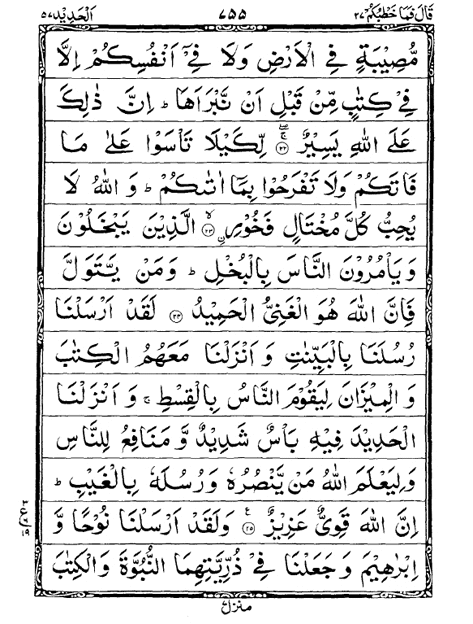 قَالَ فَمَا خَطْبُكُمْ ٢٧ ٧٥٥ اَلْحَدِيْد ٥٧
مُّصِيْبَةٍ فِي الْاَرْضِ وَلَا فِيْٓ اَنْفُسِكُمْ اِلَّا
فِيْ كِتٰبٍ مِّنْ قَبْلِ اَنْ نَّبْرَاَهَا ؕ اِنَّ ذٰلِكَ
عَلَى اللّٰهِ يَسِيْرٌ ۚۖ ﴿٢٢﴾ لِّكَيْلَا تَاْسَوْا عَلٰى مَا
فَاتَكُمْ وَلَا تَفْرَحُوْا بِمَاۤ اٰتٰىكُمْ ؕ وَ اللّٰهُ لَا
يُحِبُّ كُلَّ مُخْتَالٍ فَخُوْرِ ۙ ﴿٢٣﴾ ن الَّذِيْنَ يَبْخَلُوْنَ
وَ يَاْمُرُوْنَ النَّاسَ بِالْبُخْلِ ؕ وَمَنْ يَّتَوَلَّ
فَاِنَّ اللّٰهَ هُوَ الْغَنِيُّ الْحَمِيْدُ ﴿٢٤﴾ لَقَدْ اَرْسَلْنَا
رُسُلَنَا بِالْبَيِّنٰتِ وَ اَنْزَلْنَا مَعَهُمُ الْكِتٰبَ
وَ الْمِيْزَانَ لِيَقُوْمَ النَّاسُ بِالْقِسْطِ ۚ وَ اَنْزَلْنَا
الْحَدِيْدَ فِيْهِ بَاْسٌ شَدِيْدٌ وَّ مَنَافِعُ لِلنَّاسِ
وَ لِيَعْلَمَ اللّٰهُ مَنْ يَّنْصُرُهٗ وَ رُسُلَهٗ بِالْغَيْبِ ؕ
اِنَّ اللّٰهَ قَوِيٌّ عَزِيْزٌ ﴿٢٥﴾ ع وَلَقَدْ اَرْسَلْنَا نُوْحًا وَّ
اِبْرٰهِيْمَ وَ جَعَلْنَا فِيْ ذُرِّيَّتِهِمَا النُّبُوَّةَ وَ الْكِتٰبَ
منزل ٧